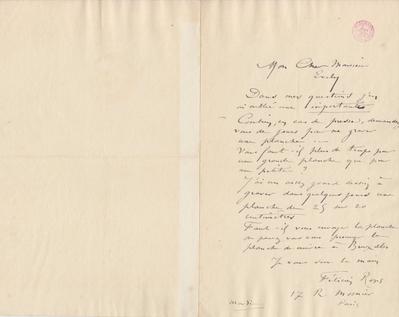 Mon Cher Monsieur
Evely
Dans mes questions j'en
ai oublié une importante
Combien, en cas de presse, demandez
vous de jours pour me graver
une planche ....
Vous faut-il plus de temps pour
une grande planche que pour
une petite ?
J'ai un assez grand dessin à
graver dans quelques jours une
planche de 25 sur 20
centimètres
Faut-il vous envoyer la planche
ou pouvez vous vous procurer la
planche de cuivre à Bruxelles
Je vous serre la main
Félicien Rops
17 R. Mosnier
Paris
mardi